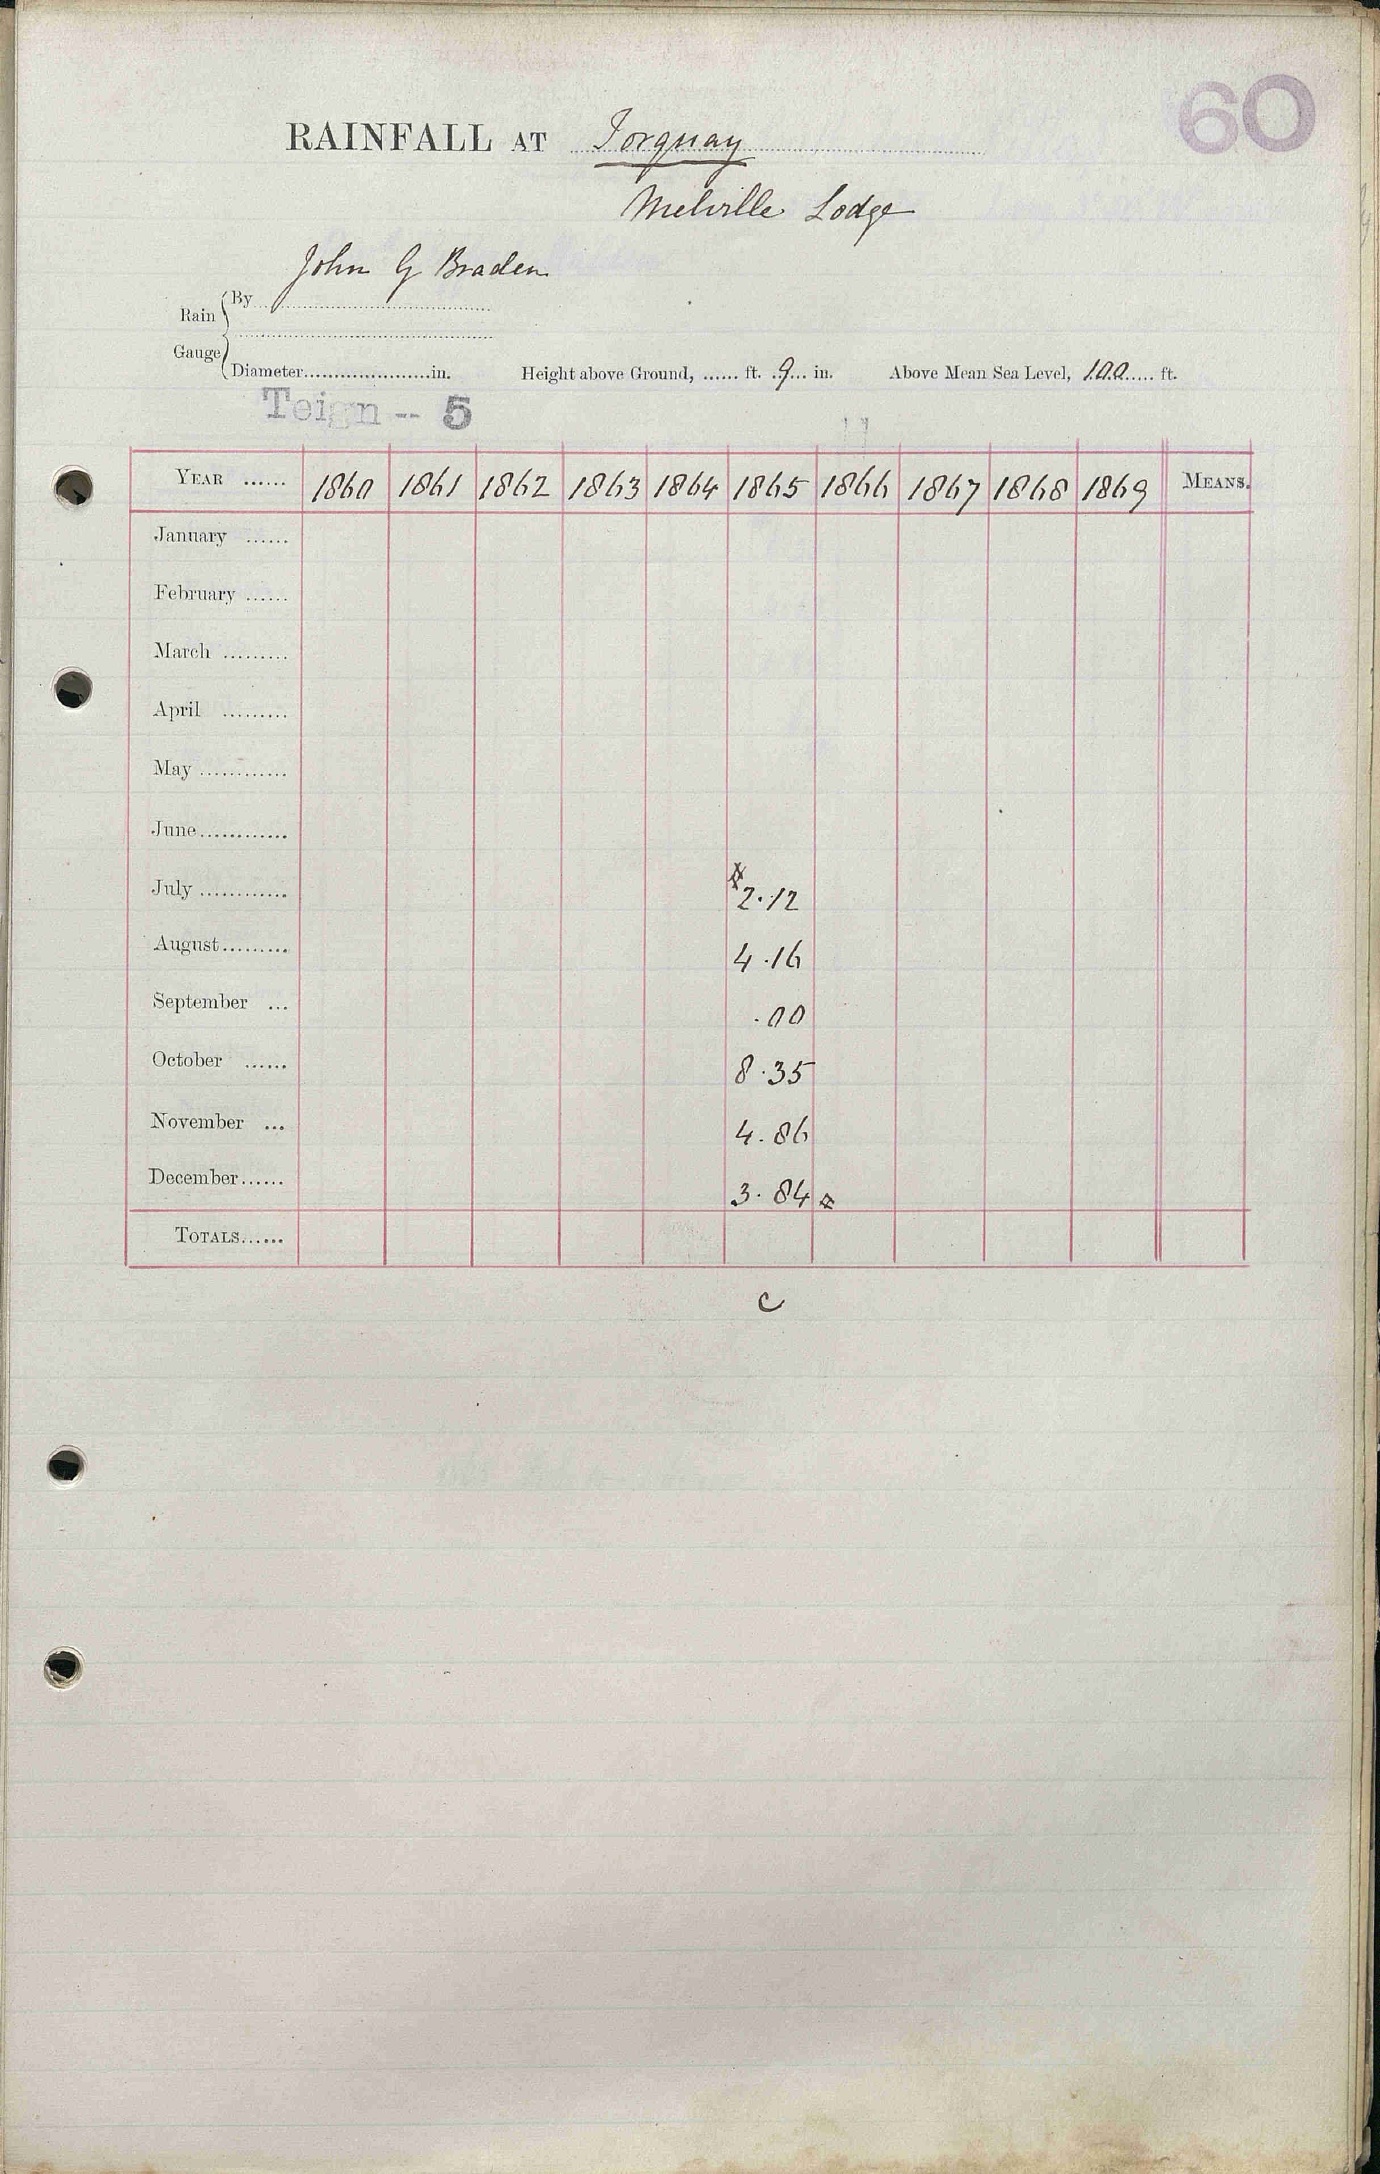 60
RAINFALL AT Torquay
Melville Lodge
John G Braden
Rain Gauge { By
Diameter.....................in. Height above Ground, ...... ft. 9 in. Above Mean Sea Level, 100 ft.
Teign -- 5
YEAR ...... 1860 1861 1862 1863 1864 1865 1866 1867 1868 1869 MEANS.
January ......
February ......
March .........
April .........
May ............
June............
July ............ 2.12
August......... 4.16
September ... .00
October ...... 8.35
November ... 4.86
December...... 3.84
TOTALS......
c